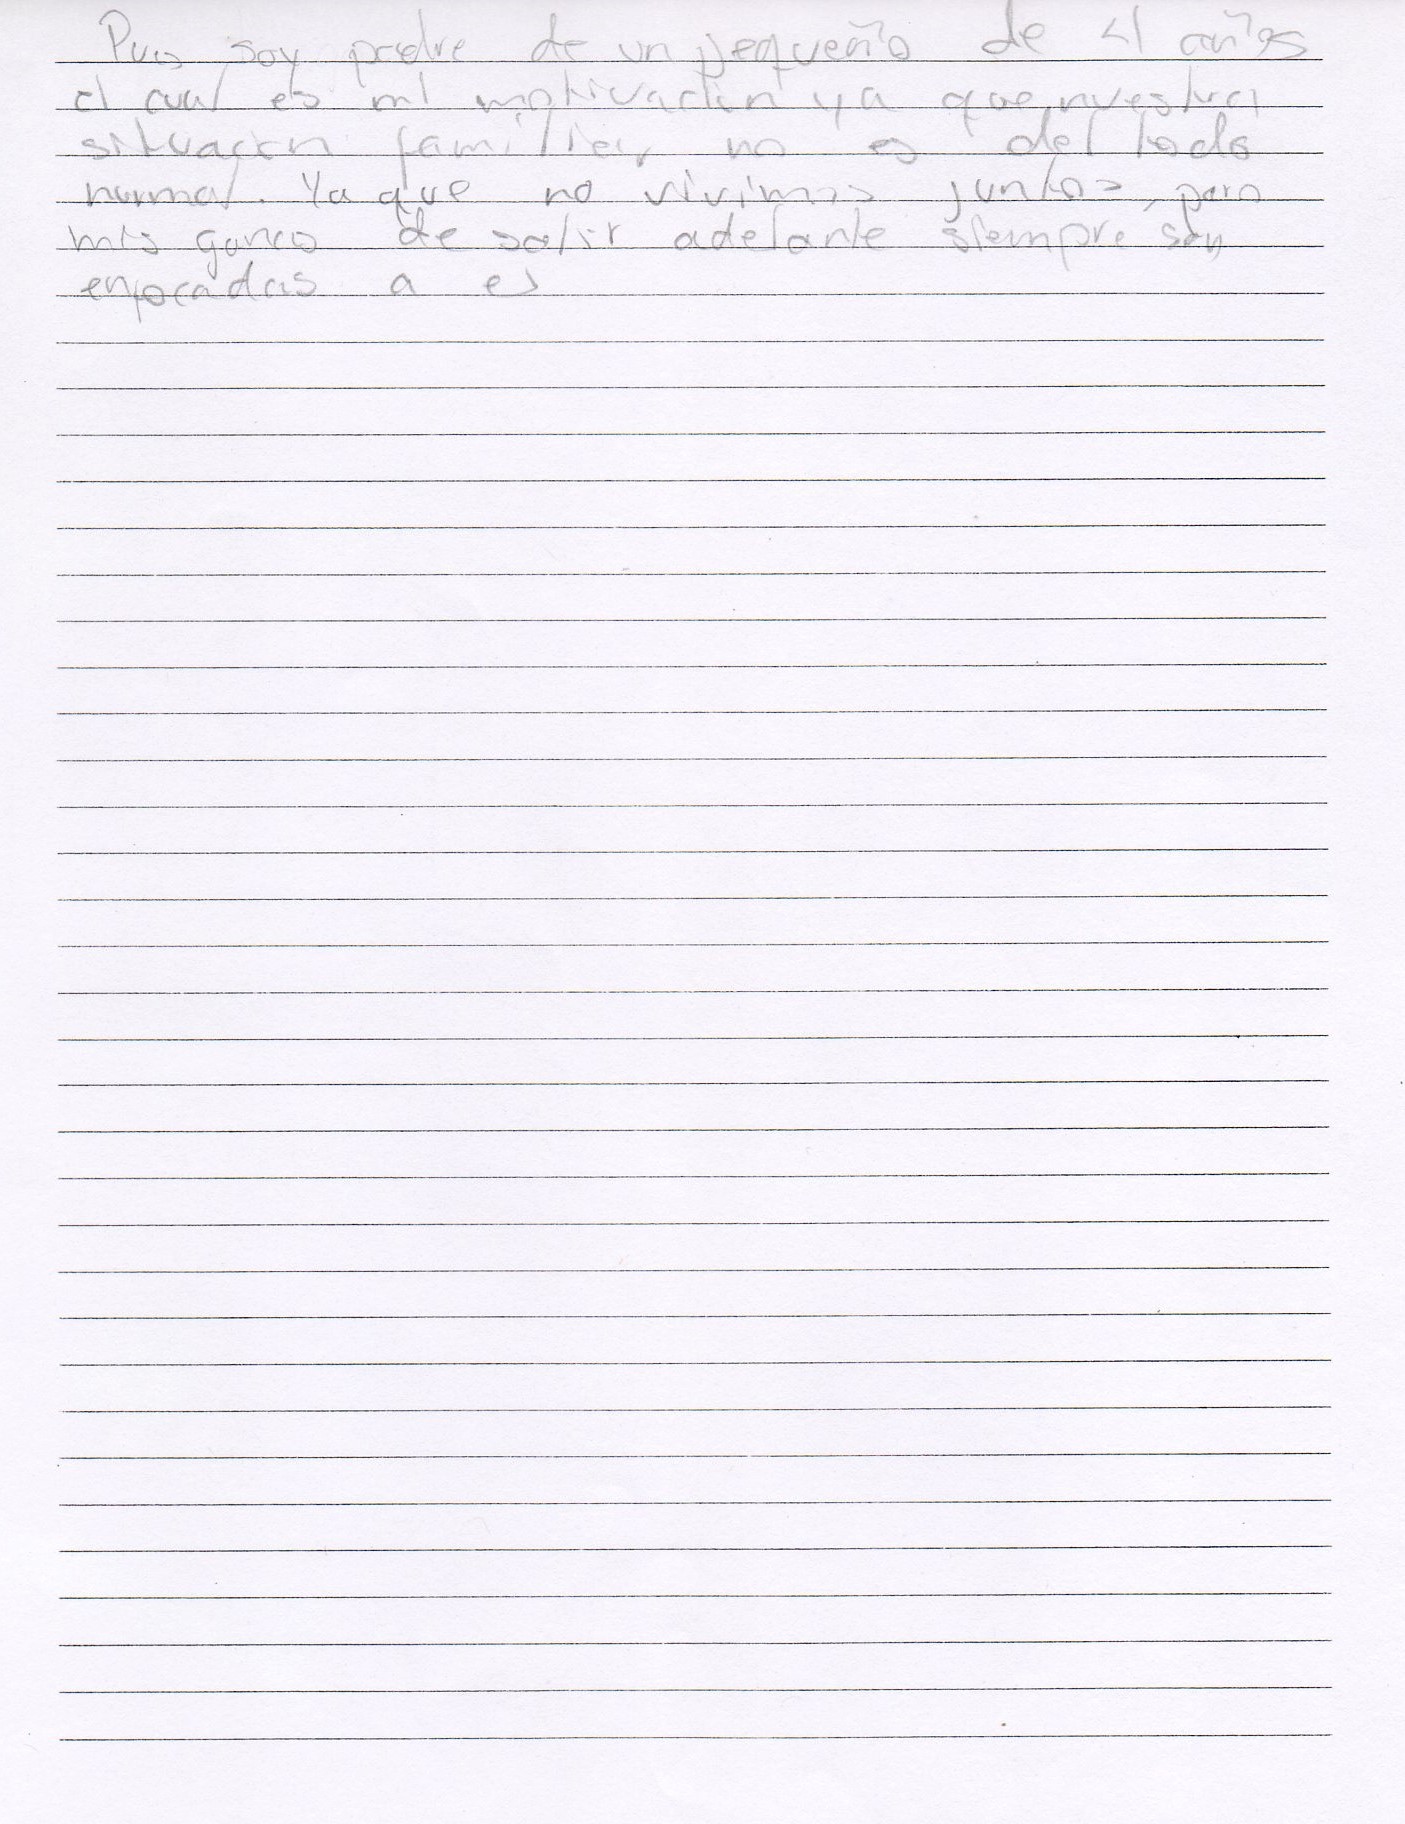 Pues soy padre de un pequeño de 4 años
el cual es mi motivación ya que nuestra
situación familiar no es del todo
normal. Ya que no vivimos juntos, pero
mis ganas de salir adelante siempre son
enfocadas a el